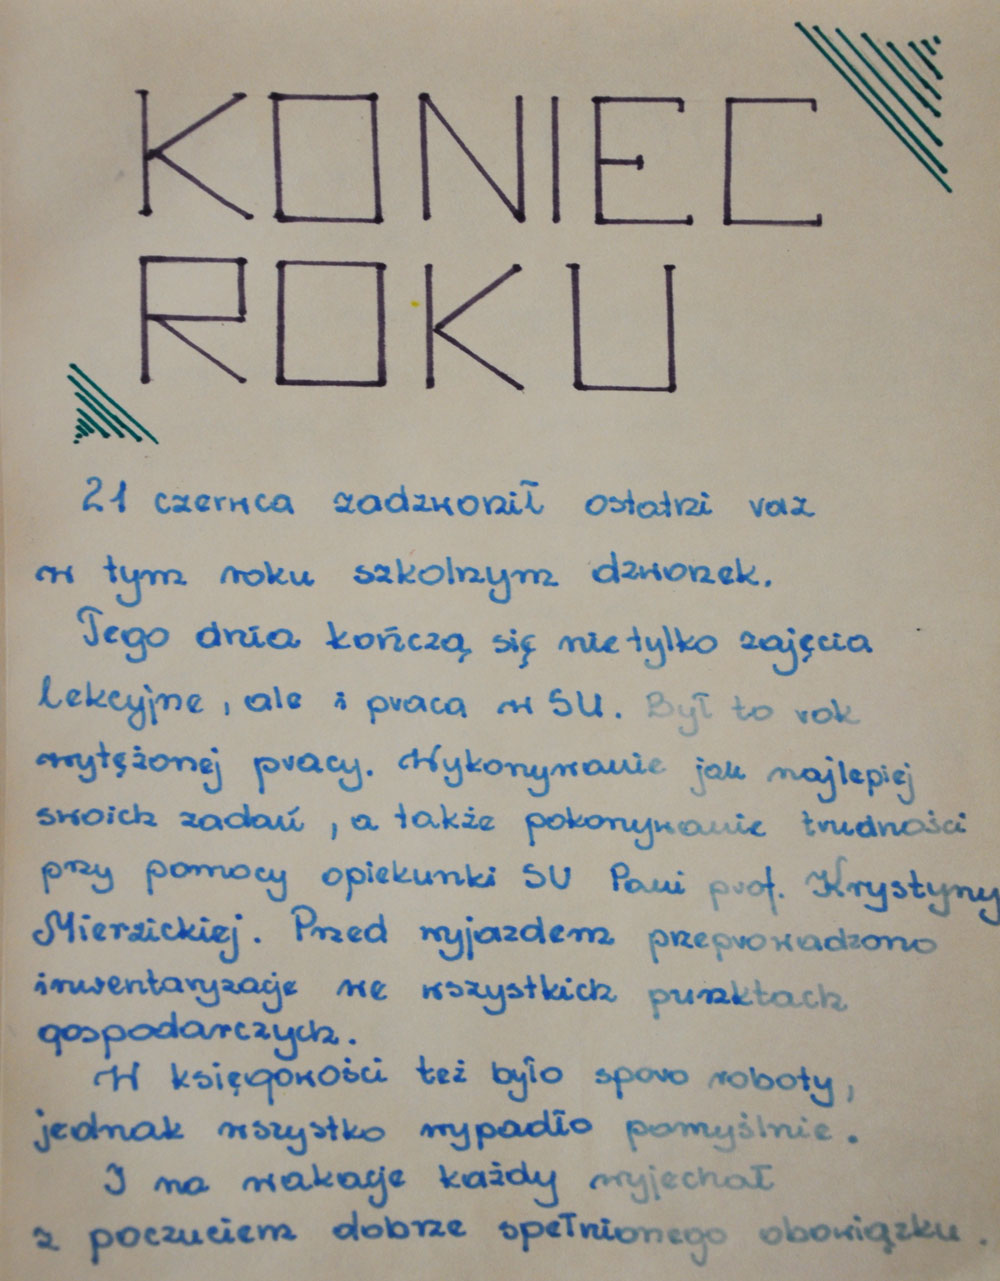 KONIEC
ROKU
21 czerwca zadzwonił ostatni raz
w tym roku szkolnym dzwonek.
Tego dnia kończą się nie tylko zajęcia
lekcyjne, ale i praca w SU. Był to rok
wytężonej pracy. Wykonywanie jak najlepiej
swoich zadań, a także pokonywanie trudności
przy pomocy opiekunki SU Pani prof. Krystyny
Mierzickiej. Przed wyjazdem przeprowadzono
inwentaryzację we wszystkich punktach
gospodarczych.
W księgowości też było sporo roboty,
jednak wszystko wypadło pomyślnie.
I na wakacje każdy wyjechał
z poczuciem dobrze spełnionego obowiązku.